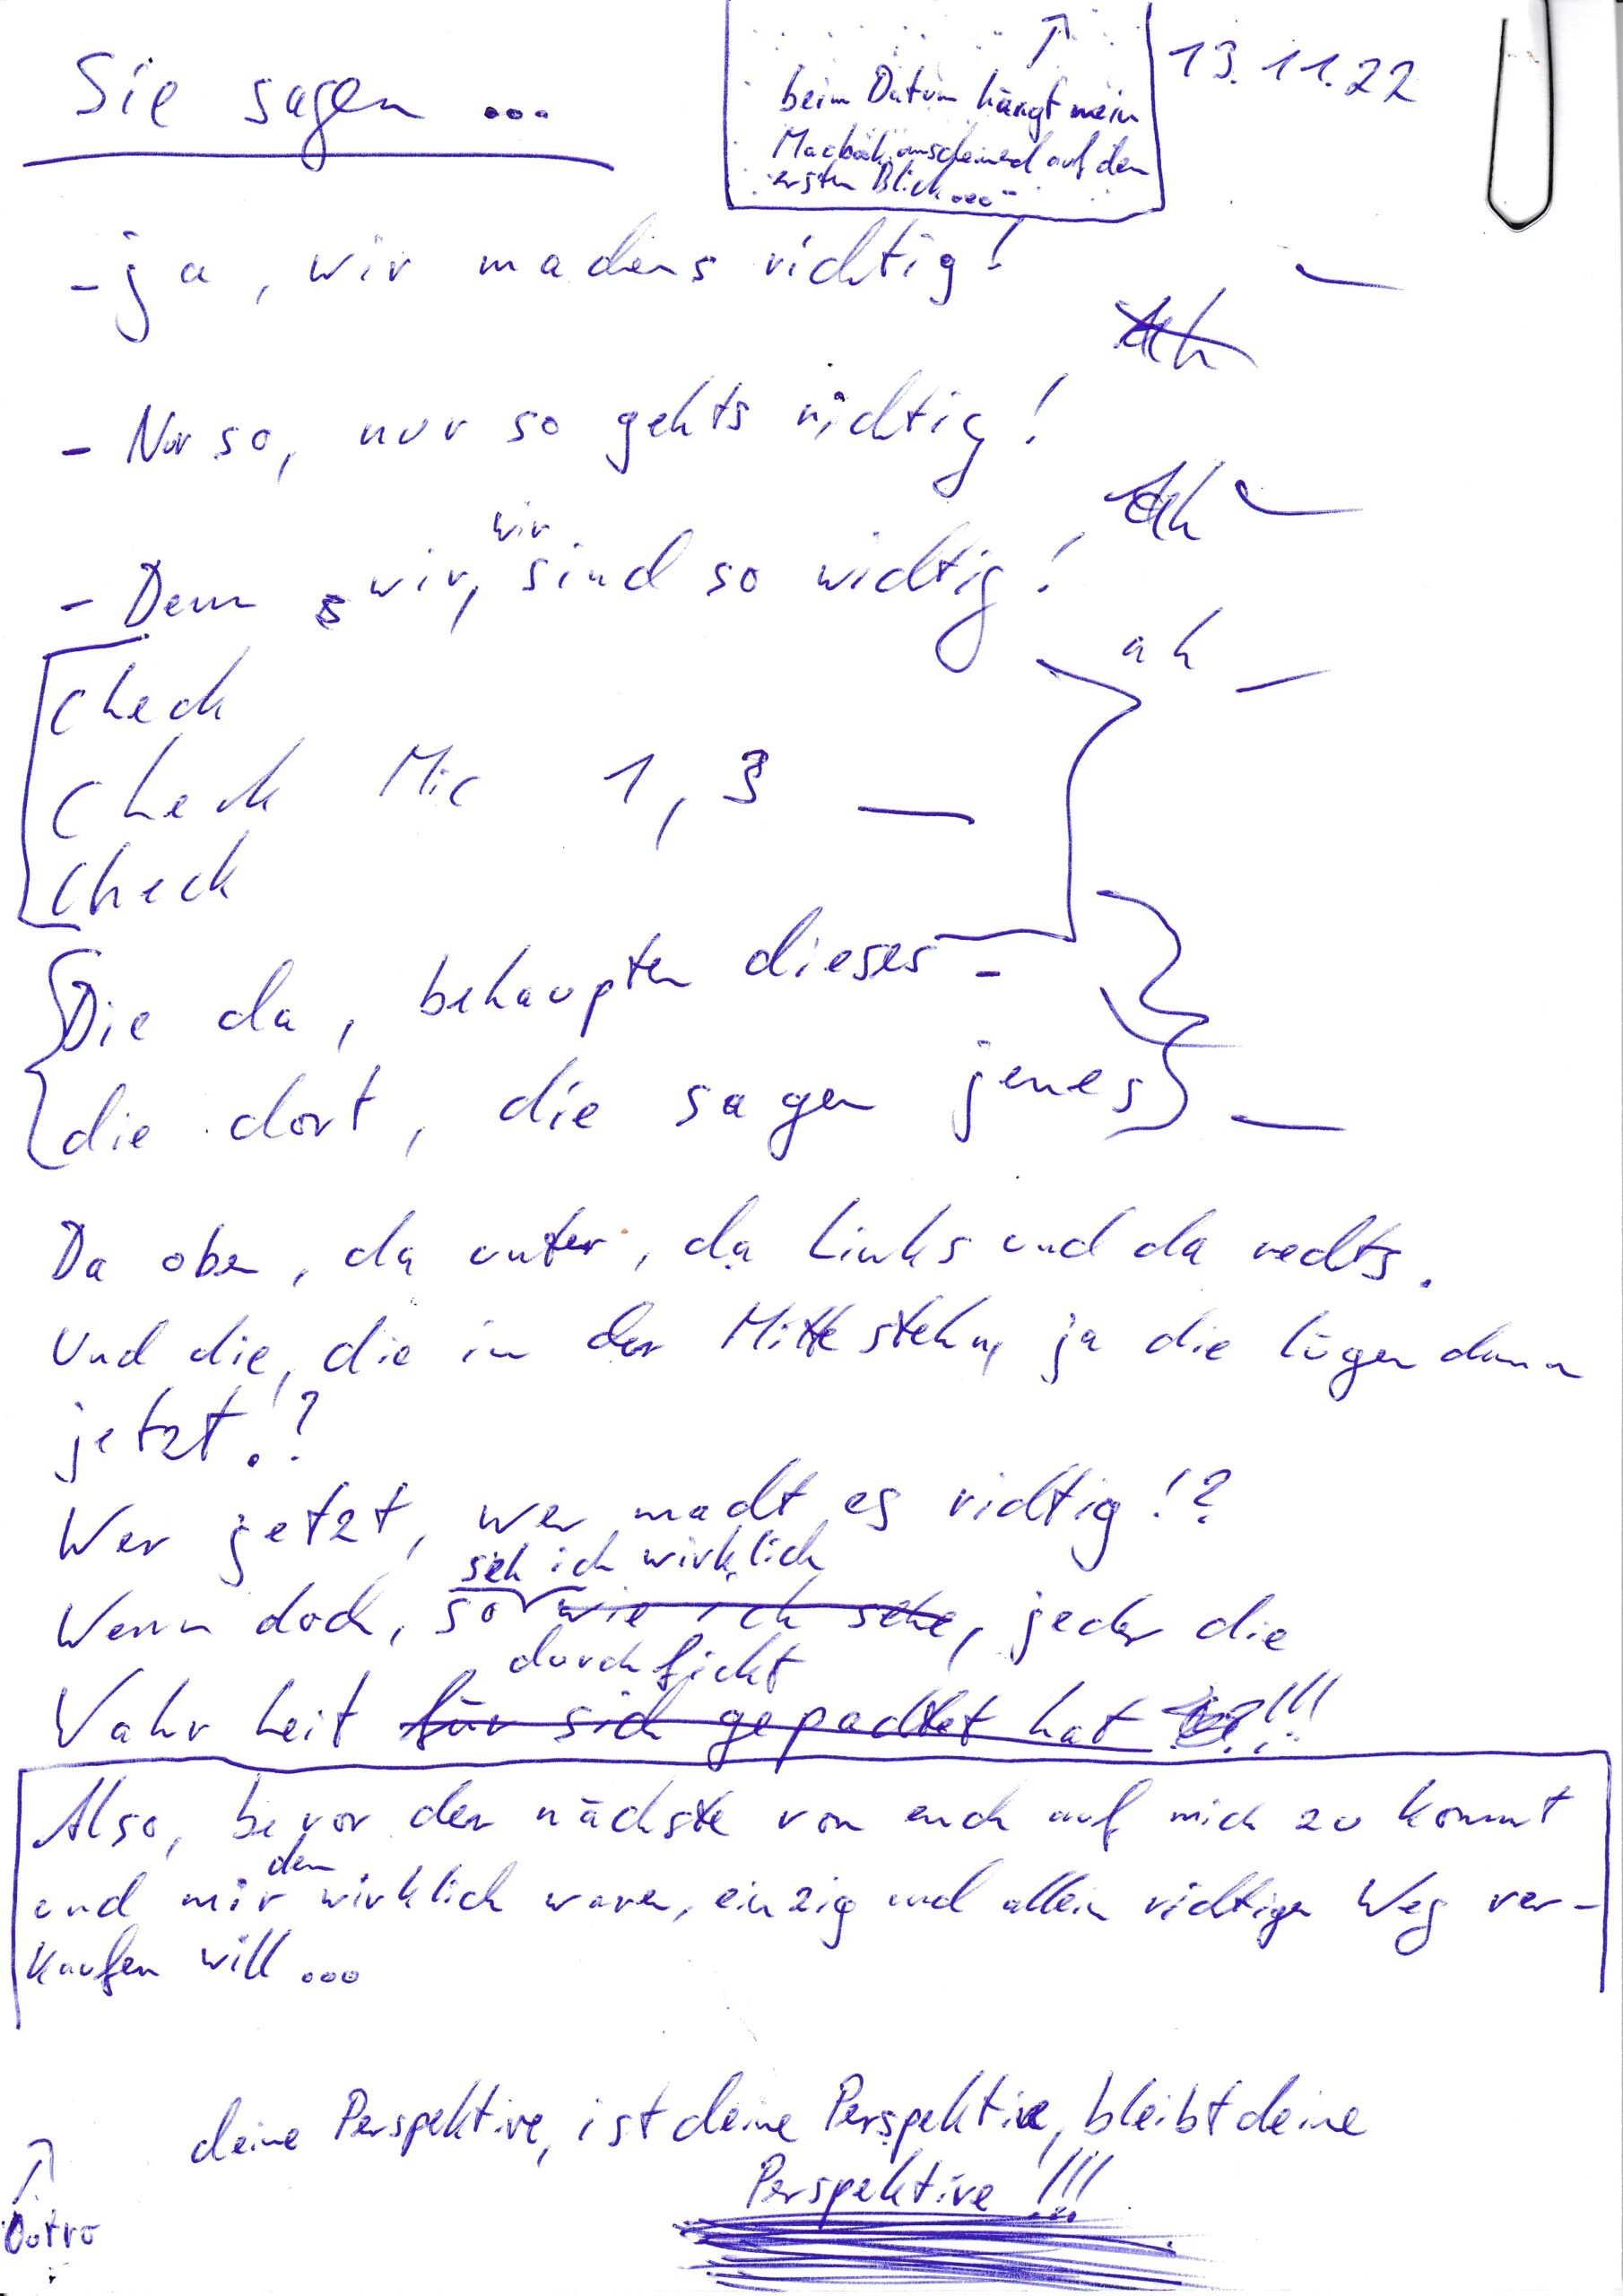 Sie sagen ...
13.11.22
beim Datum hängt mein
Macbook anscheinend auf den
ersten Blick...-
- ja, wir machens richtig!
Ah
- Nur so, nur so gehts richtig!
Ah
wir
- Denn wir, sind so wichtig!
ah -
Check
Check Mic 1, 3 _
Check
Die da, behaupten dieses -
die dort, die sagen jenes -
Da oben, da unten, da Links und da rechts.
Und die, die in der Mitte stehn, ja die lügen dann
jetzt.!?
Wer jetzt, wer macht es richtig!?
seh ich wirklich
Wenn doch, so wie ich sehe, jeder die
durchfickt
Wahrheit für sich gepachtet hat !!!
Also, bevor der nächste von euch auf mich zu kommt
den
und mir wirklich waren, einzig und allein richtigen Weg ver-
kaufen will ...
deine Perspektive, ist deine Perspektive, bleibt deine
Perspektive!!!
Outro